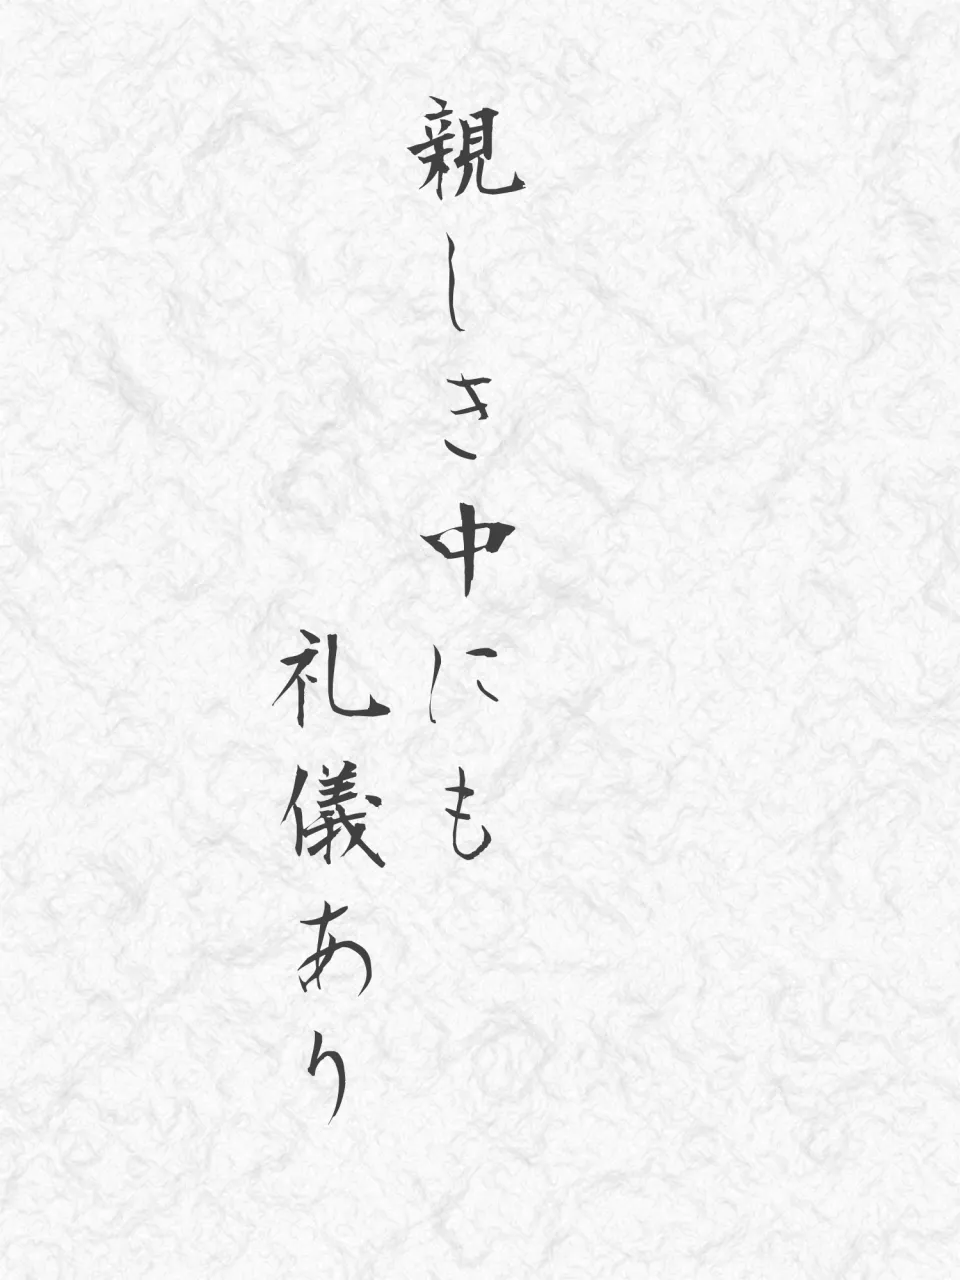 親しき中にも
礼儀あり